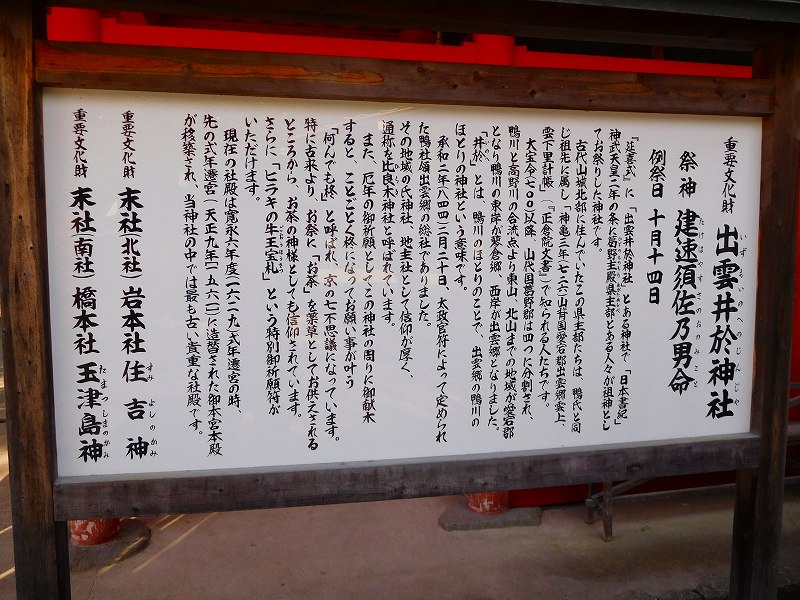 重要文化財 出雲井於神社
いずもいのへのじんじゃ
祭神 建速須佐乃男命
たけはやすさのおのみこと
例祭日 十月十四日
『延喜式』に「出雲井於神社」とある神社で「日本書紀」
神武天皇二年の条に葛野主殿県主部とある人々が祖神とし
てお祭りした神社です。
古代山城北部に住んでいたこの県主部たちは、鴨氏と同
じ祖先に属し「神亀三年(七二六)山背国愛宕郡出雲郷雲上、
雲下里計帳」(『正倉院文書』)で知られる人たちです。
大宝令(七〇〇)以降、山代国葛野郡は四つに分割され、
鴨川と高野川の合流点より東山、北山までの地域が愛宕郡
となり鴨川の東岸が蓼倉郷、西岸が出雲郷となりました。
「井於」とは、鴨川のほとりのことで、出雲郷の鴨川の
ほとりの神社という意味です。
承和二年(八四四)二月二十日、太政官符によって定められ
た鴨社領出雲郷の総社でありました。
その地域の氏神社、地主社として信仰が厚く、
通称を比良木神社と呼ばれています。
また、厄年の御祈願としてこの神社の周りに御献木
すると、ことごとく柊になってお願い事が叶う
「何んでも柊」と呼ばれ、京の七不思議になっています。
特に古来より、お祭に「お茶」を薬草としてお供えされる
ところから、お茶の神様としても信仰されています。
さらに「ヒラキの牛王宝札」という特別御祈願符が
いただけます。
現在の社殿は寛永六年度(一六二九)式年遷宮の時、
先の式年遷宮(天正九年(一五六一))に造替された御本宮本殿
が移築され、当神社の中では最も古い貴重な社殿です。
重要文化財 末社(北社) 岩本社 住吉神
すみよしのかみ
重要文化財 末社(南社) 橋本社 玉津島神
たまつしまのかみ